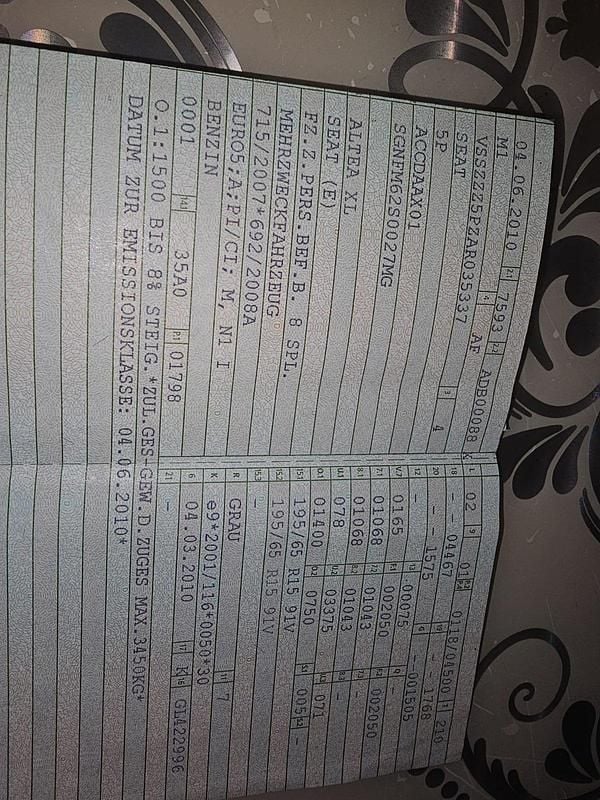 04.06.2010 2.1 7593 2.2 ADB00088
M1 4 AF
VSSZZZ5FZAR035337
SEAT 3 4
5P
ACCDAAX01
SGNFM62S0027MG
ALTEA XL
SEAT (E)
FZ.Z.PERS.BEF.B. 8 SPL.
MEHRZWECKFAHRZEUG
715/2007*692/2008A
EURO5;A;PI/CI; M, N1 I
BENZIN
0001 14.1 35A0 P.1 01798
L 02 9 01 P.2 P.4 0118/04500 T 210
18 - - 04467 19 - - 1768
20 - - 1575 G - -001505
12 - 13 00075 Q -
V.7 0165 F.1 002050 F.2 002050
7.1 01068 7.2 01043 7.3 -
8.1 01068 8.2 01043 8.3 -
U.1 078 U.2 03375 U.3 071
O.1 01400 O.2 0750 S.1 005 S.2 -
15.1 195/65 R15 91V
15.2 195/65 R15 91V
15.3 -
R GRAU 11 7
K e9*2001/116*0050*30
6 04.03.2010 17 K 16 GL422996
21 -
O.1:1500 BIS 8% STEIG.*ZUL.GES-GEW.D.ZUGES MAX.3450KG*
DATUM ZUR EMISSIONSKLASSE: 04.06.2010*